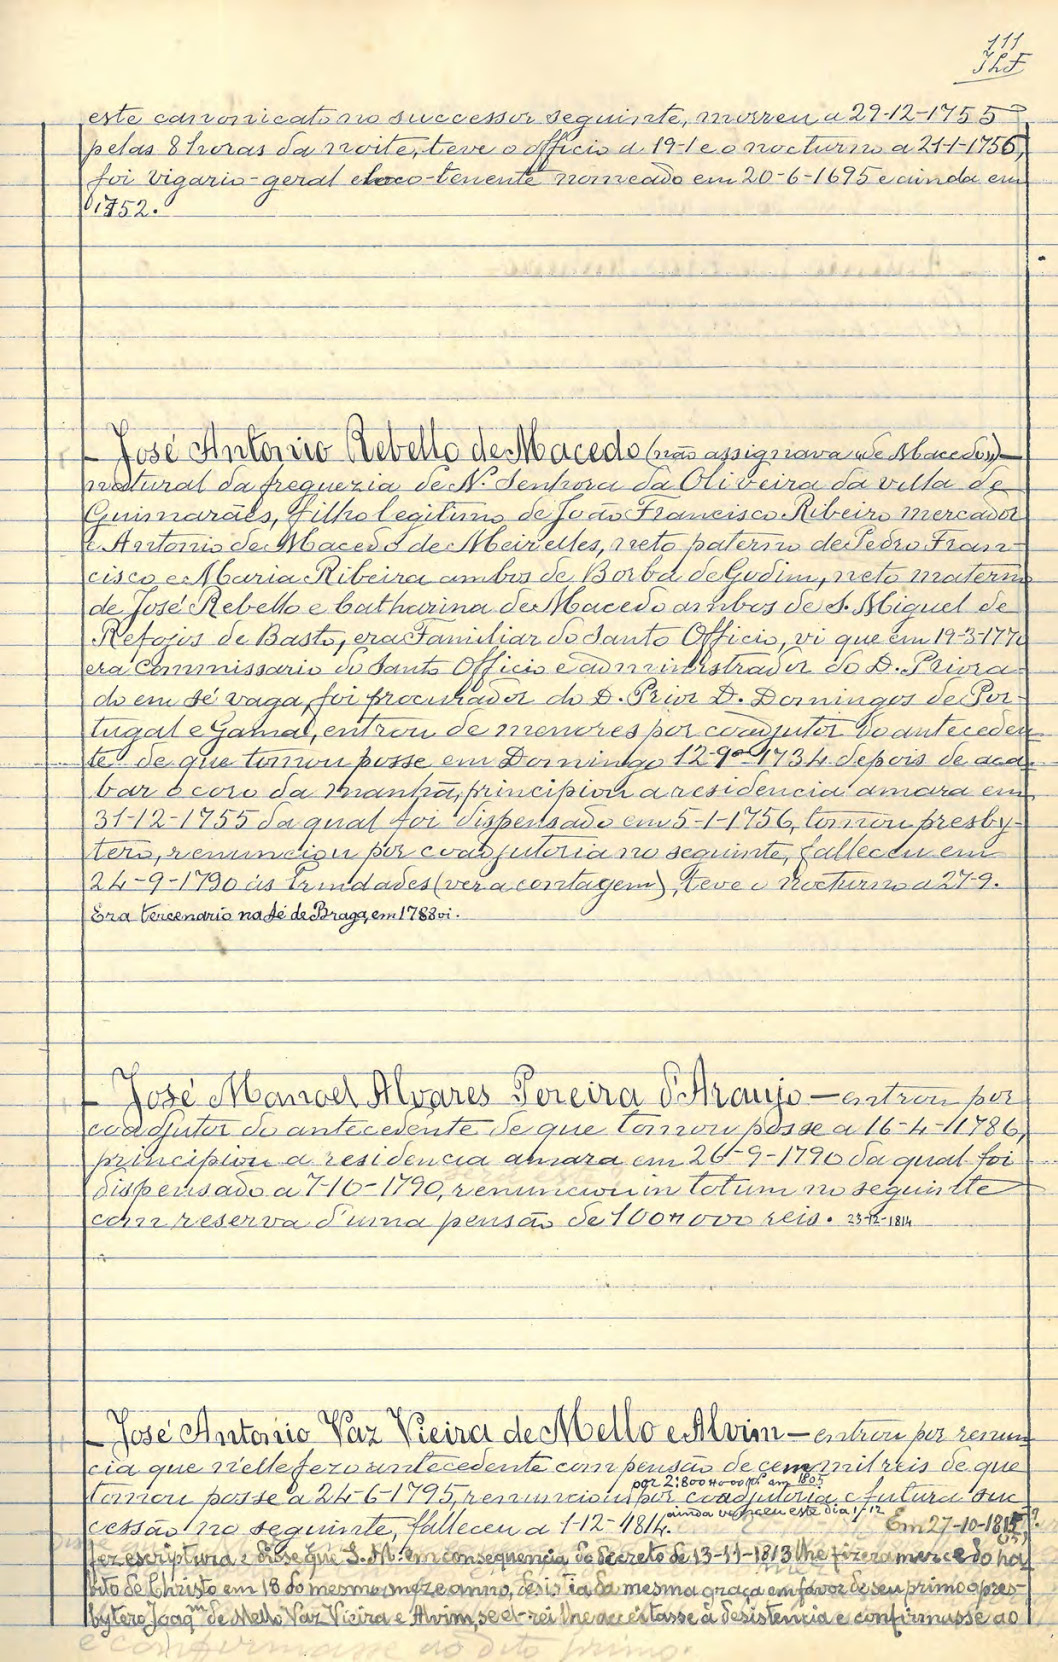 111
este canonicato no successor seguinte, morreu a 29-12-1755
pelas 8 horas da noite, teve o officio a 19-1 e o nocturno a 21-1-1756,
foi vigario-geral e loco-tenente nomeado em 20-6-1695 e ainda em
1752.
— José Antonio Rebello de Macedo (não assignava «de Macedo») —
natural da freguezia de N. Senhora da Oliveira da villa de
Guimarães, filho legitimo de João Francisco Ribeiro mercador
e Antonio de Macedo de Meirelles, neto paterno de Pedro Fran-
cisco e Maria Ribeira ambos de Borba de Godim, neto materno
de José Rebello e Catharina de Macedo ambos de S. Miguel de
Refojos de Basto, era Familiar do Santo Officio, vi que em 19-3-1770
era Commissario do Santo Officio e administrador do D. Priora-
do em sé vaga, foi procurador do D. Prior D. Domingos de Por-
tugal e Gama, entrou de menores por coadjutor do anteceden-
te de que tomou posse em Domingo 12-9-1734 depois de aca-
bar o coro da manhã, principiou a residencia amara em
31-12-1755 da qual foi dispensado em 5-1-1756, tomou presby-
tero, renunciou por coadjutoria no seguinte, falleceu em
24-9-1790 ás Trindades (ver a contagem), teve o nocturno a 27-9.
Era tercenario na Sé de Braga, em 1788 vi.
— José Manoel Alvares Pereira d'Araujo — entrou por
coadjutor do antecedente de que tomou posse a 16-4-1786,
principiou a residencia amara em 26-9-1790 da qual foi
dispensado a 7-10-1790, renunciou in totum no seguinte
com reserva d'uma pensão de 100#000 reis. 23-12-1814
— José Antonio Vaz Vieira de Mello e Alvim — entrou por renun-
cia que n'elle fez o antecedente com pensão de cem mil reis de que
por 2:800#000 rs em 1805
tomou posse a 24-6-1795, renunciou por coadjutoria e futura suc-
ainda venceu este dia 1/12
cessão no seguinte, falleceu a 1-12-1814. Em 27-10-1815?
fez escriptura e disse que S. M. em consequencia do decreto de 13-11-1813 lhe fizera merce do ha-
bito de Christo em 18 do mesmo mez e anno, desistia da mesma graça em favor de seu primo o pres-
bytero Joaqm de Mello Vaz Vieira e Alvim, se el-rei lhe acceitasse a desistencia e confirmasse ao
e confirmasse ao dito primo.